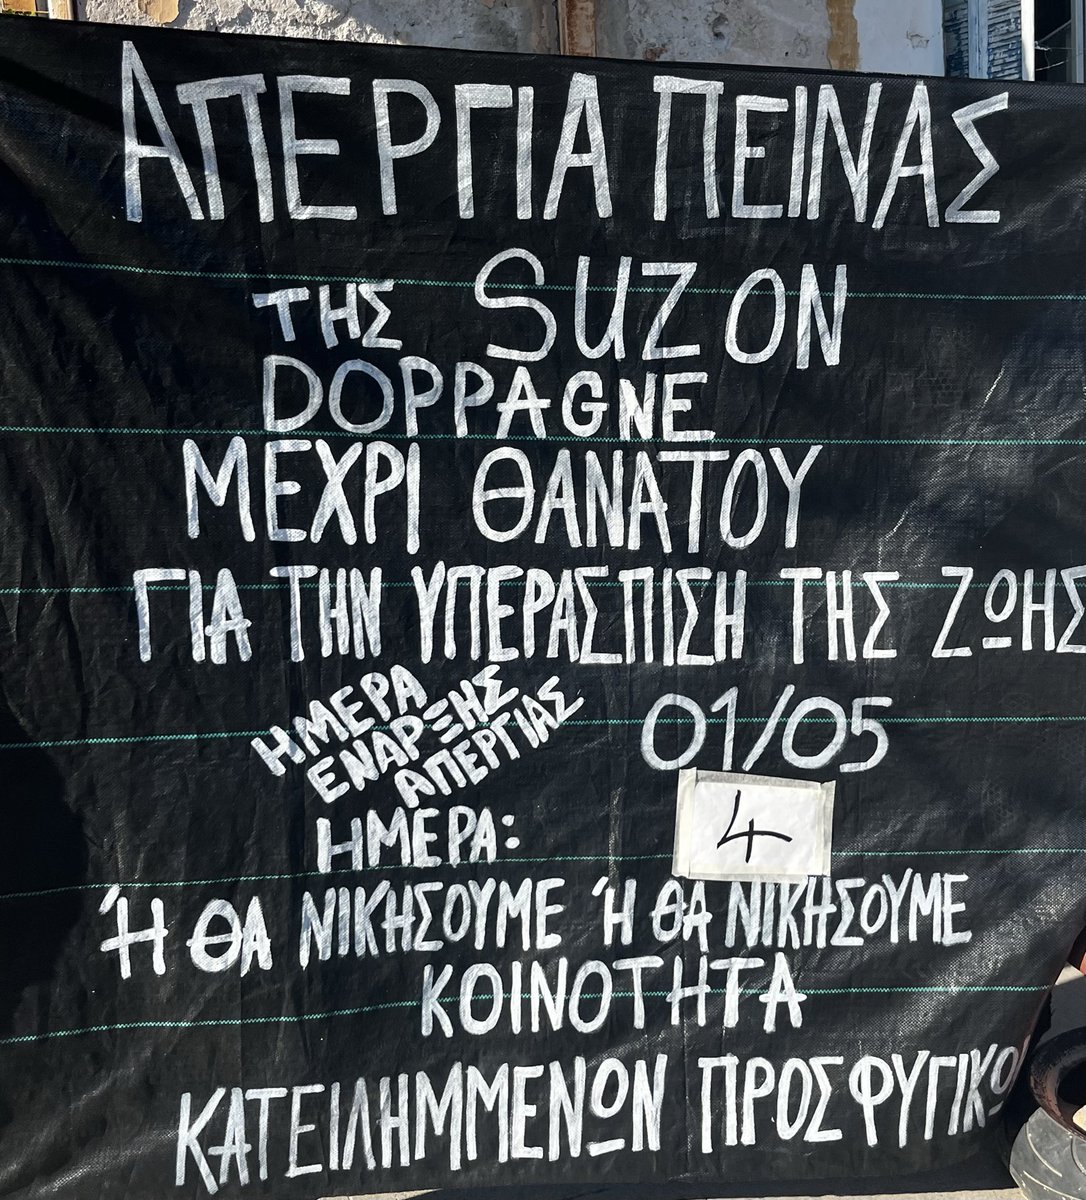 ΑΠΕΡΓΙΑ ΠΕΙΝΑΣ
ΤΗΣ SUZON
DOPPAGNE
ΜΕΧΡΙ ΘΑΝΑΤΟΥ
ΓΙΑ ΤΗΝ ΥΠΕΡΑΣΠΙΣΗ ΤΗΣ ΖΩΗΣ
ΗΜΕΡΑ
ΕΝΑΡΞΗΣ
ΑΠΕΡΓΙΑΣ
01/05
ΗΜΕΡΑ: 4
Ή ΘΑ ΝΙΚΗΣΟΥΜΕ Ή ΘΑ ΝΙΚΗΣΟΥΜΕ
ΚΟΙΝΟΤΗΤΑ
ΚΑΤΕΙΛΗΜΜΕΝΩΝ ΠΡΟΣΦΥΓΙΚΩ